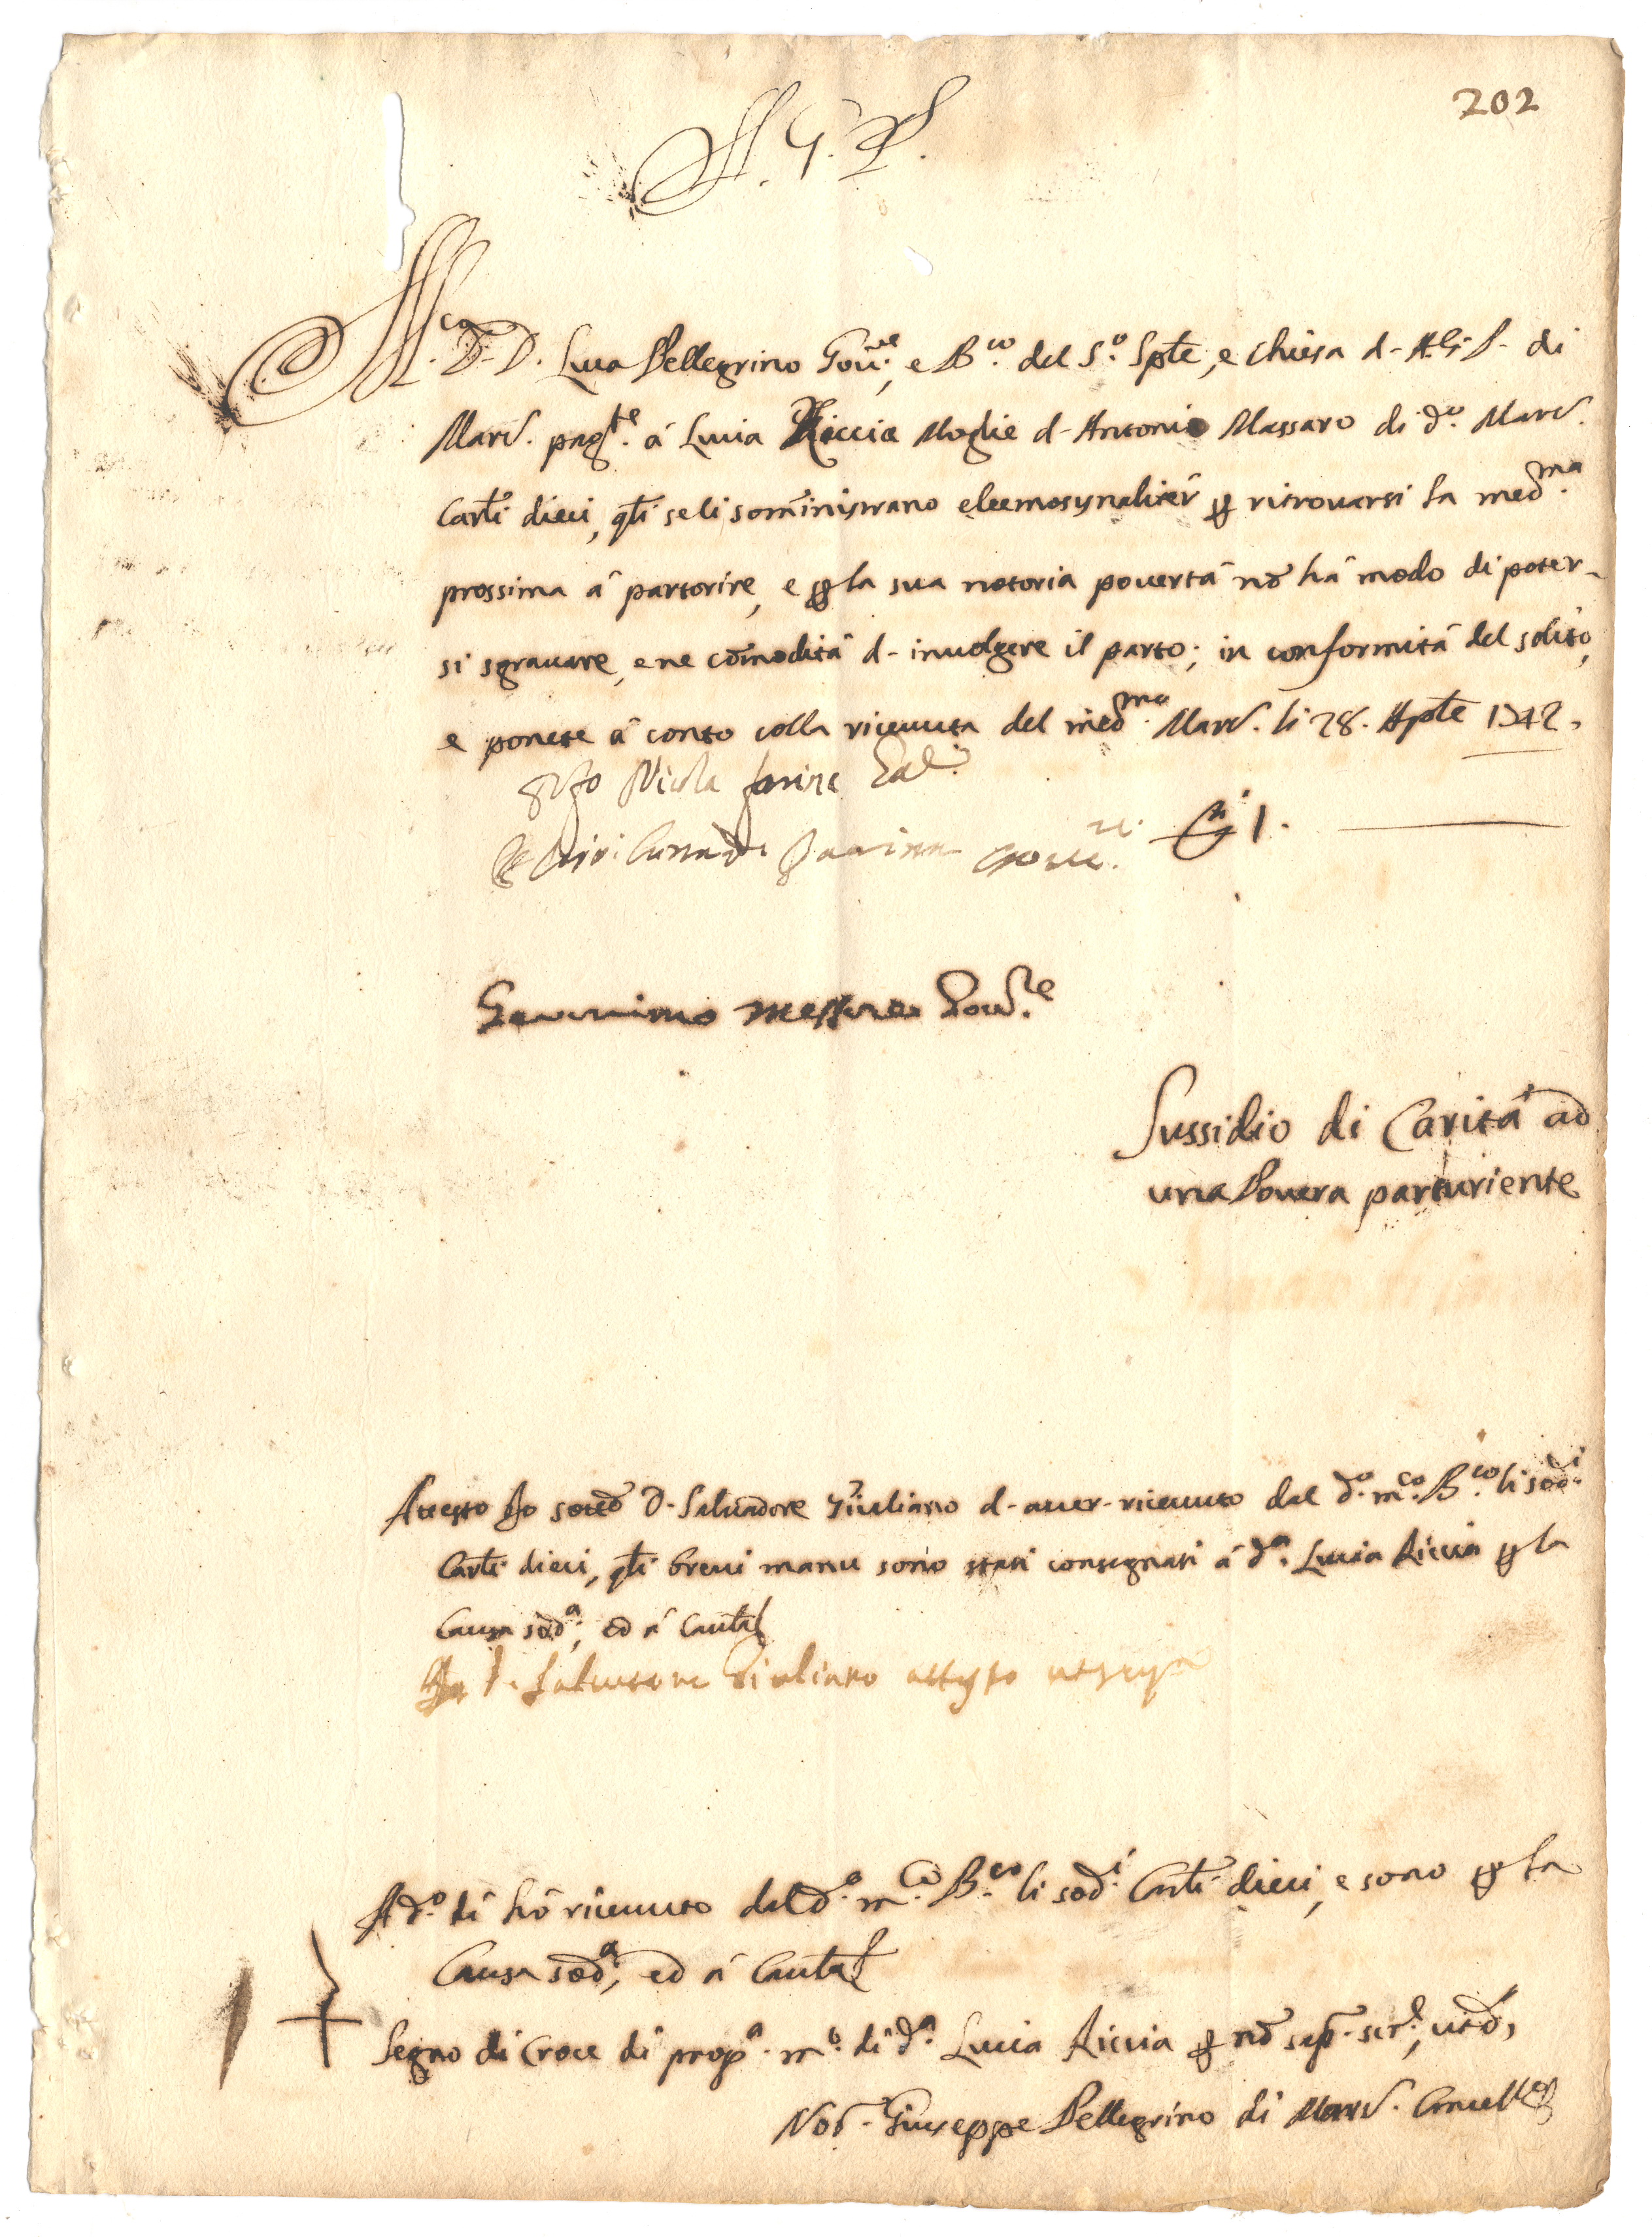 202
A. G. P.
M.co D. D. Luca Pellegrino Gov.re, e B.co del S.o Sple, e Chiesa d- A. G. P. di
Marc. pag.te â Lucia Riccia Moglie d- Antonio Massaro di d.o Marc.
Carli dieci, qli se li som̃inistrano eleemosynalitêr p ritrovarsi la med.ma
prossima â partorire, e p la sua notoria povertâ nō hâ modo di poter-
si sgravare, e ne cōmoditâ d- involgere il parto; in conformitâ del solito,
e ponete â conto colla ricevuta del med.mo Marc. li 28. Aple 1742,
Nicola
1.
Geronimo Messere Gov.re
Sussidio di Carità ad
una Povera parturiente
Attesto Io sotto D. Salvadore Giuliano d- aver- ricevuto dal d.o m.co B.co li sod.i
Carli dieci, qli brevi manu sono stati consegnati â d.a Lucia Riccia p la
Causa sod.a, ed â Cautel
Io D. Salvatore Giuliano attesto
A d.o dî hô ricevuto dal d.o m.co B.co li sod.i Carli dieci, e sono p la
Causa sod.a, ed â Cautel
Segno di Croce di prop.a m.o di d.a Lucia Riccia p nō sap. scr.e, ut d,
Not. Giuseppe Pellegrino di Marc. Cancell.e